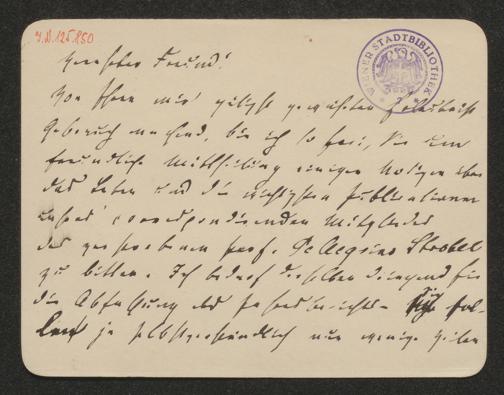 I.N. 125.850
WIENER STADTBIBLIOTHEK
Verehrter Freund!
Von Ihrer mir gütigst gewährten Erlaubnis
Gebrauch machend, bin ich so frei, Sie um
freundliche Mittheilung einiger Notizen über
das Leben und die wichtigsten Publicationen
unseres correspondirenden Mitgliedes
des verstorbenen Prof. Pellegrino Strobel
zu bitten. Ich bedarf derselben dringend für
die Abfassung des Jahresberichtes. Es sol-
len ja selbstverständlich nur wenige Zeilen